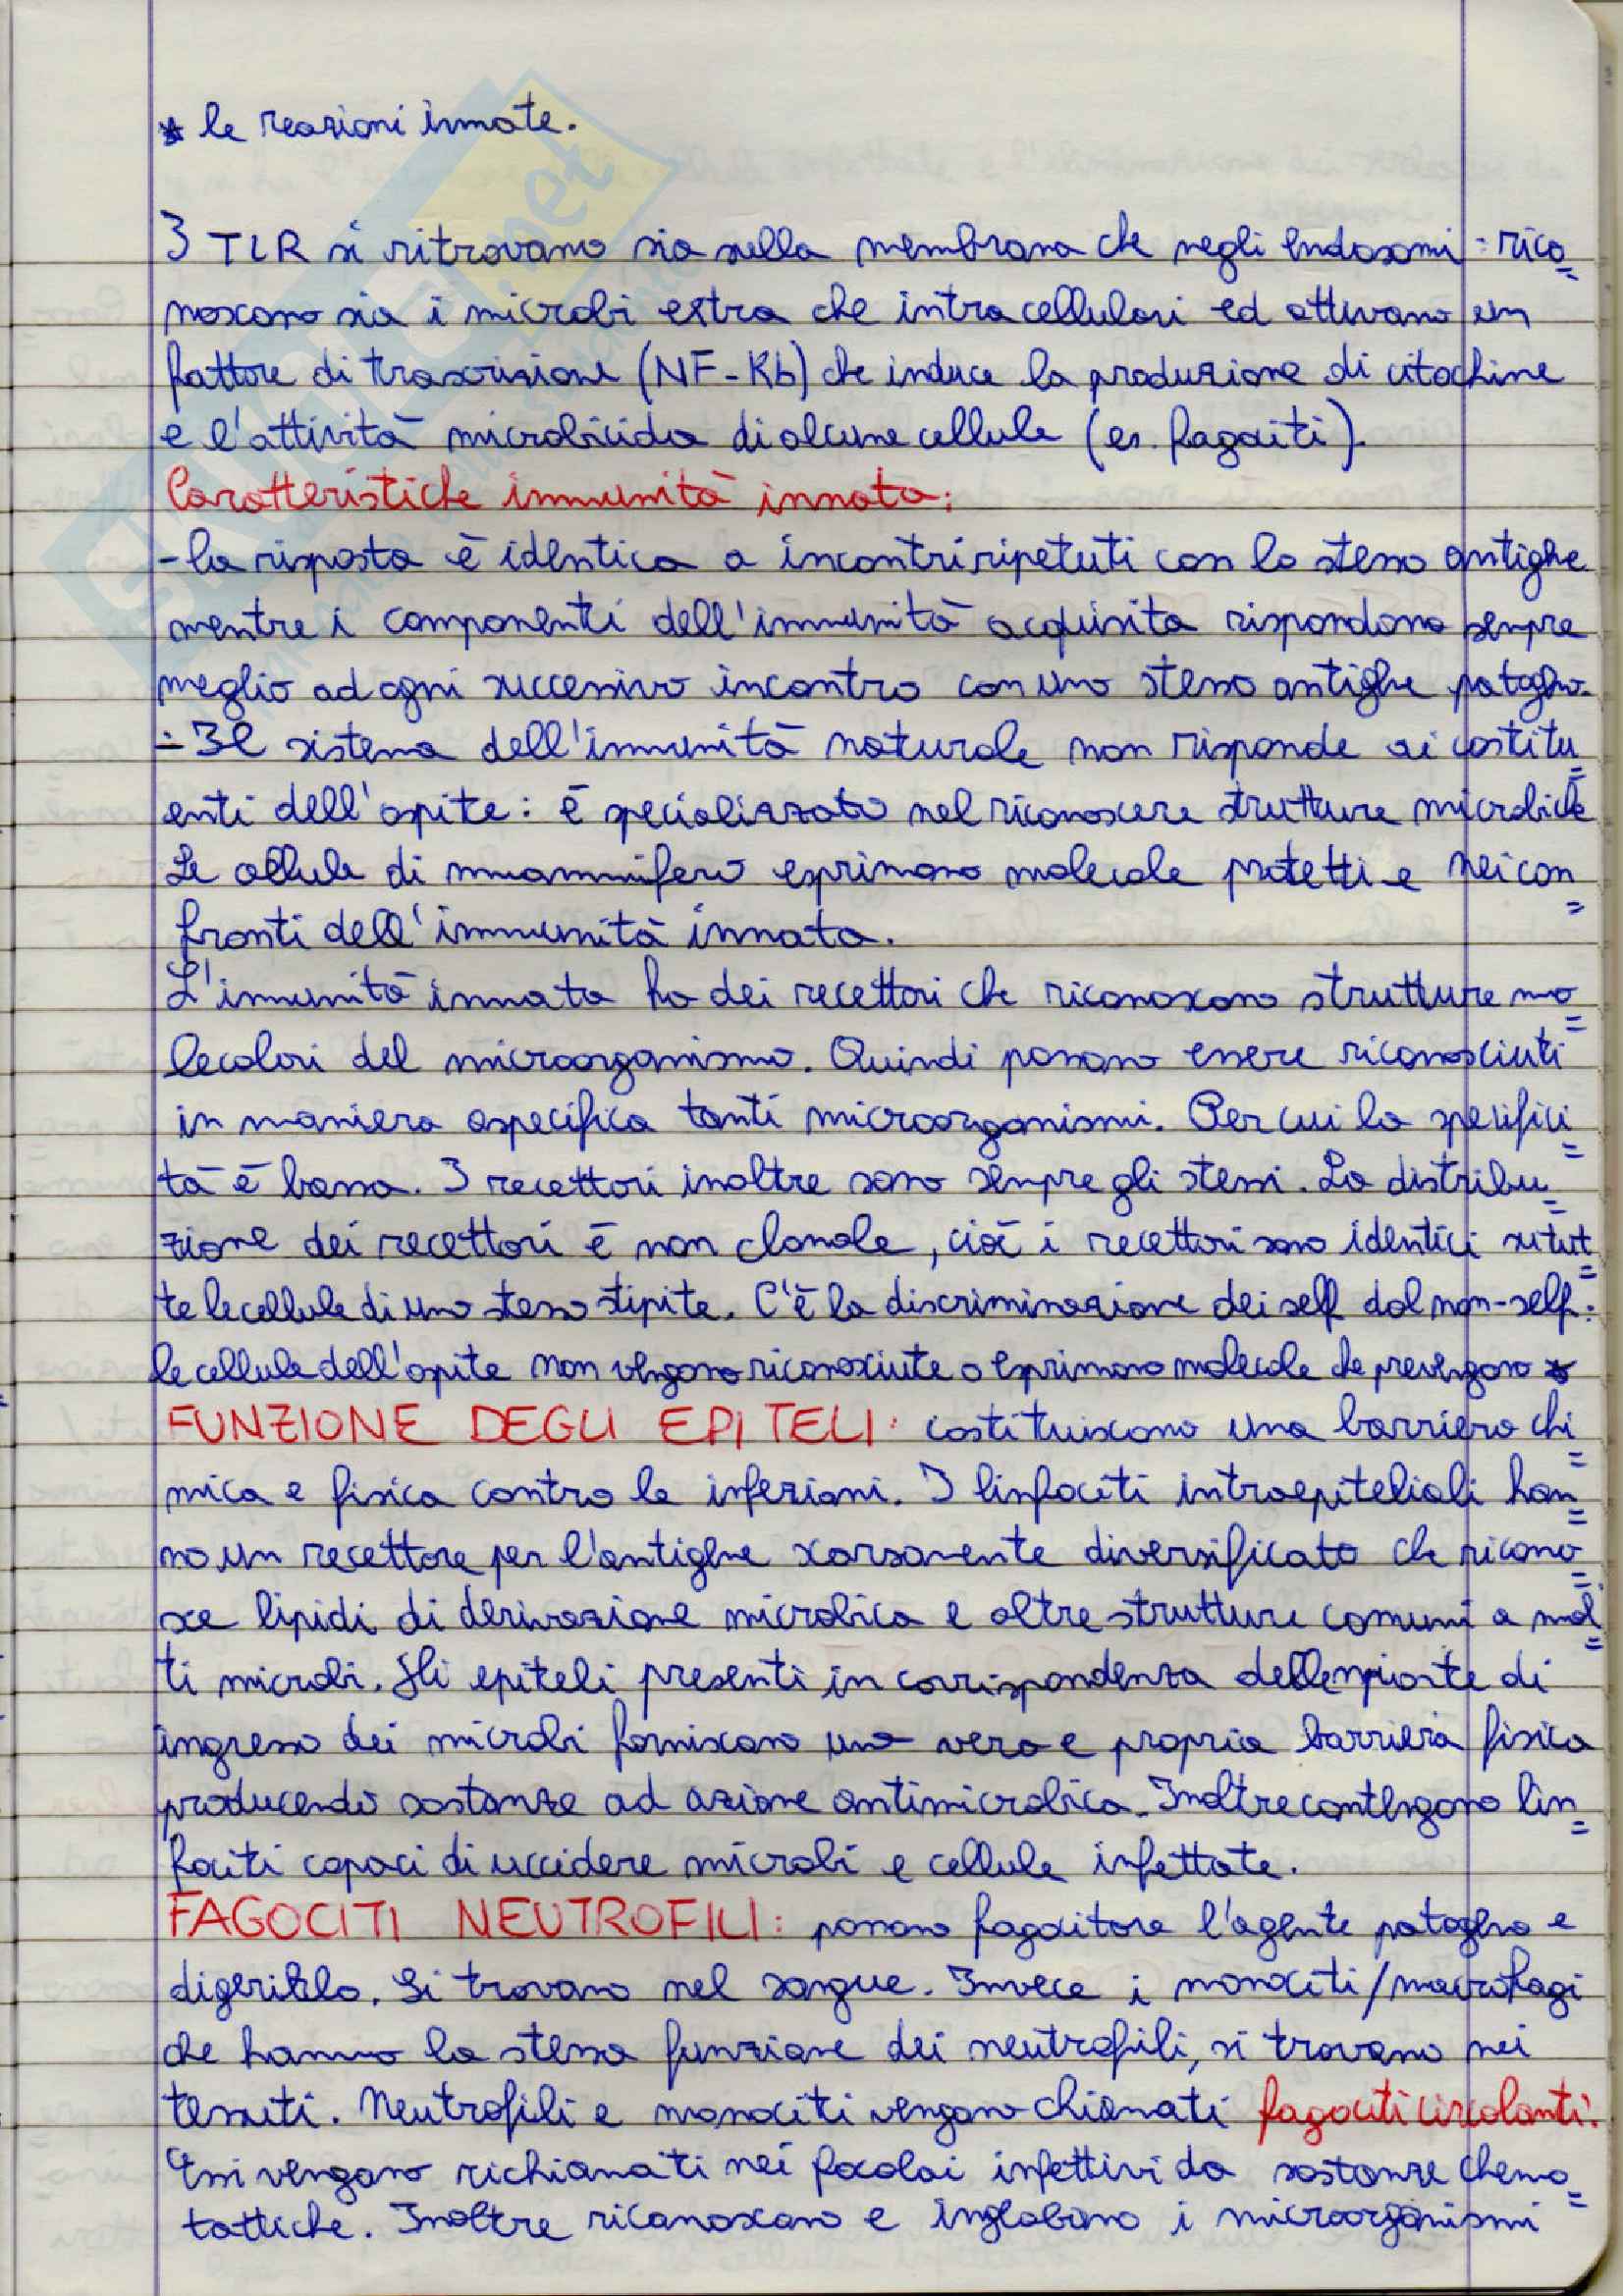 * le reazioni innate.
I TLR si ritrovano sia sulla membrana che negli endosomi: rico=
noscono sia i microbi extra che intracellulari ed attivano un
fattore di trascrizione (NF-Kb) che induce la produzione di citochine
e l'attività microbicida di alcune cellule (es. fagociti).
Caratteristiche immunità innata:
- la risposta è identica a incontri ripetuti con lo stesso antigene
mentre i componenti dell'immunità acquisita rispondono sempre
meglio ad ogni successivo incontro con uno stesso antighe patogeno.
- Il sistema dell'immunità naturale non risponde ai costitu=
enti dell'ospite: è specializzato nel riconoscere strutture microbiche
Le cellule di mammifero esprimono molecole protettive nei con=
fronti dell'immunità innata.
L'immunità innata ha dei recettori che riconoscono strutture mo=
lecolari del microorganismo. Quindi possono essere riconosciuti
in maniera aspecifica tanti microorganismi. Per cui la specifici=
tà è bassa. I recettori inoltre sono sempre gli stessi. La distribu=
zione dei recettori è non clonale, cioè i recettori sono identici su tut=
te le cellule di uno stesso stipite. C'è la discriminazione dei self dal non-self:
le cellule dell'ospite non vengono riconosciute o esprimono molecole che prevengono *
FUNZIONE DEGLI EPITELI: costituiscono una barriera chi=
mica e fisica contro le infezioni. I linfociti intraepiteliali han=
no un recettore per l'antigene scarsamente diversificato che ricono=
sce lipidi di derivazione microbica e altre strutture comuni a mol=
ti microbi. Gli epiteli presenti in corrispondenza delle porte di
ingresso dei microbi forniscono una vera e propria barriera fisica
producendo sostanze ad azione antimicrobica. Inoltre contengono lin=
fociti capaci di uccidere microbi e cellule infettate.
FAGOCITI NEUTROFILI: possono fagocitare l'agente patogeno e
digerirlo. Si trovano nel sangue. Invece i monociti/macrofagi
che hanno la stessa funzione dei neutrofili, si trovano nei
tessuti. Neutrofili e monociti vengono chiamati fagociti circolanti.
Essi vengono richiamati nei focolai infettivi da sostanze chemo=
tattiche. Inoltre riconoscono e inglobano i microorganismi